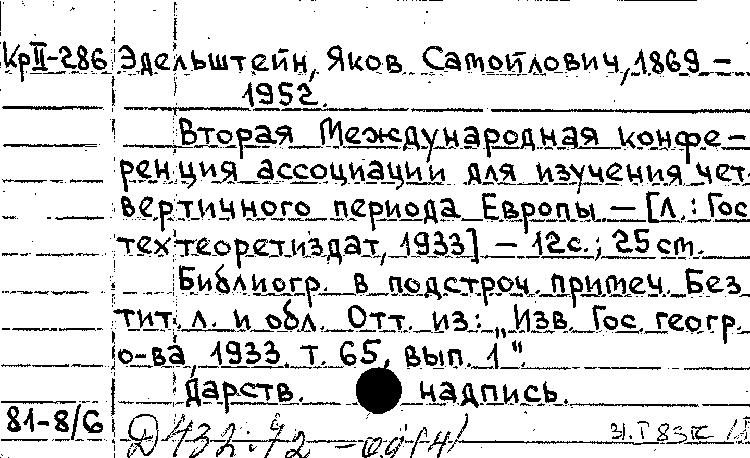 КрII-286 Эдельштейн, Яков Самойлович, 1869 –
1952.
Вторая Международная конфе-
ренция ассоциации для изучения чет
вертичного периода Европы – [Л.: Гос
техтеоретиздат, 1933] – 12с.; 25 cm.
Библиогр. в подстроч. примеч. Без
тит. л. и обл. Отт. из: „Изв. Гос. геогр.
о-ва, 1933. т. 65, вып. 1".
Дарств. надпись.
81-8/6